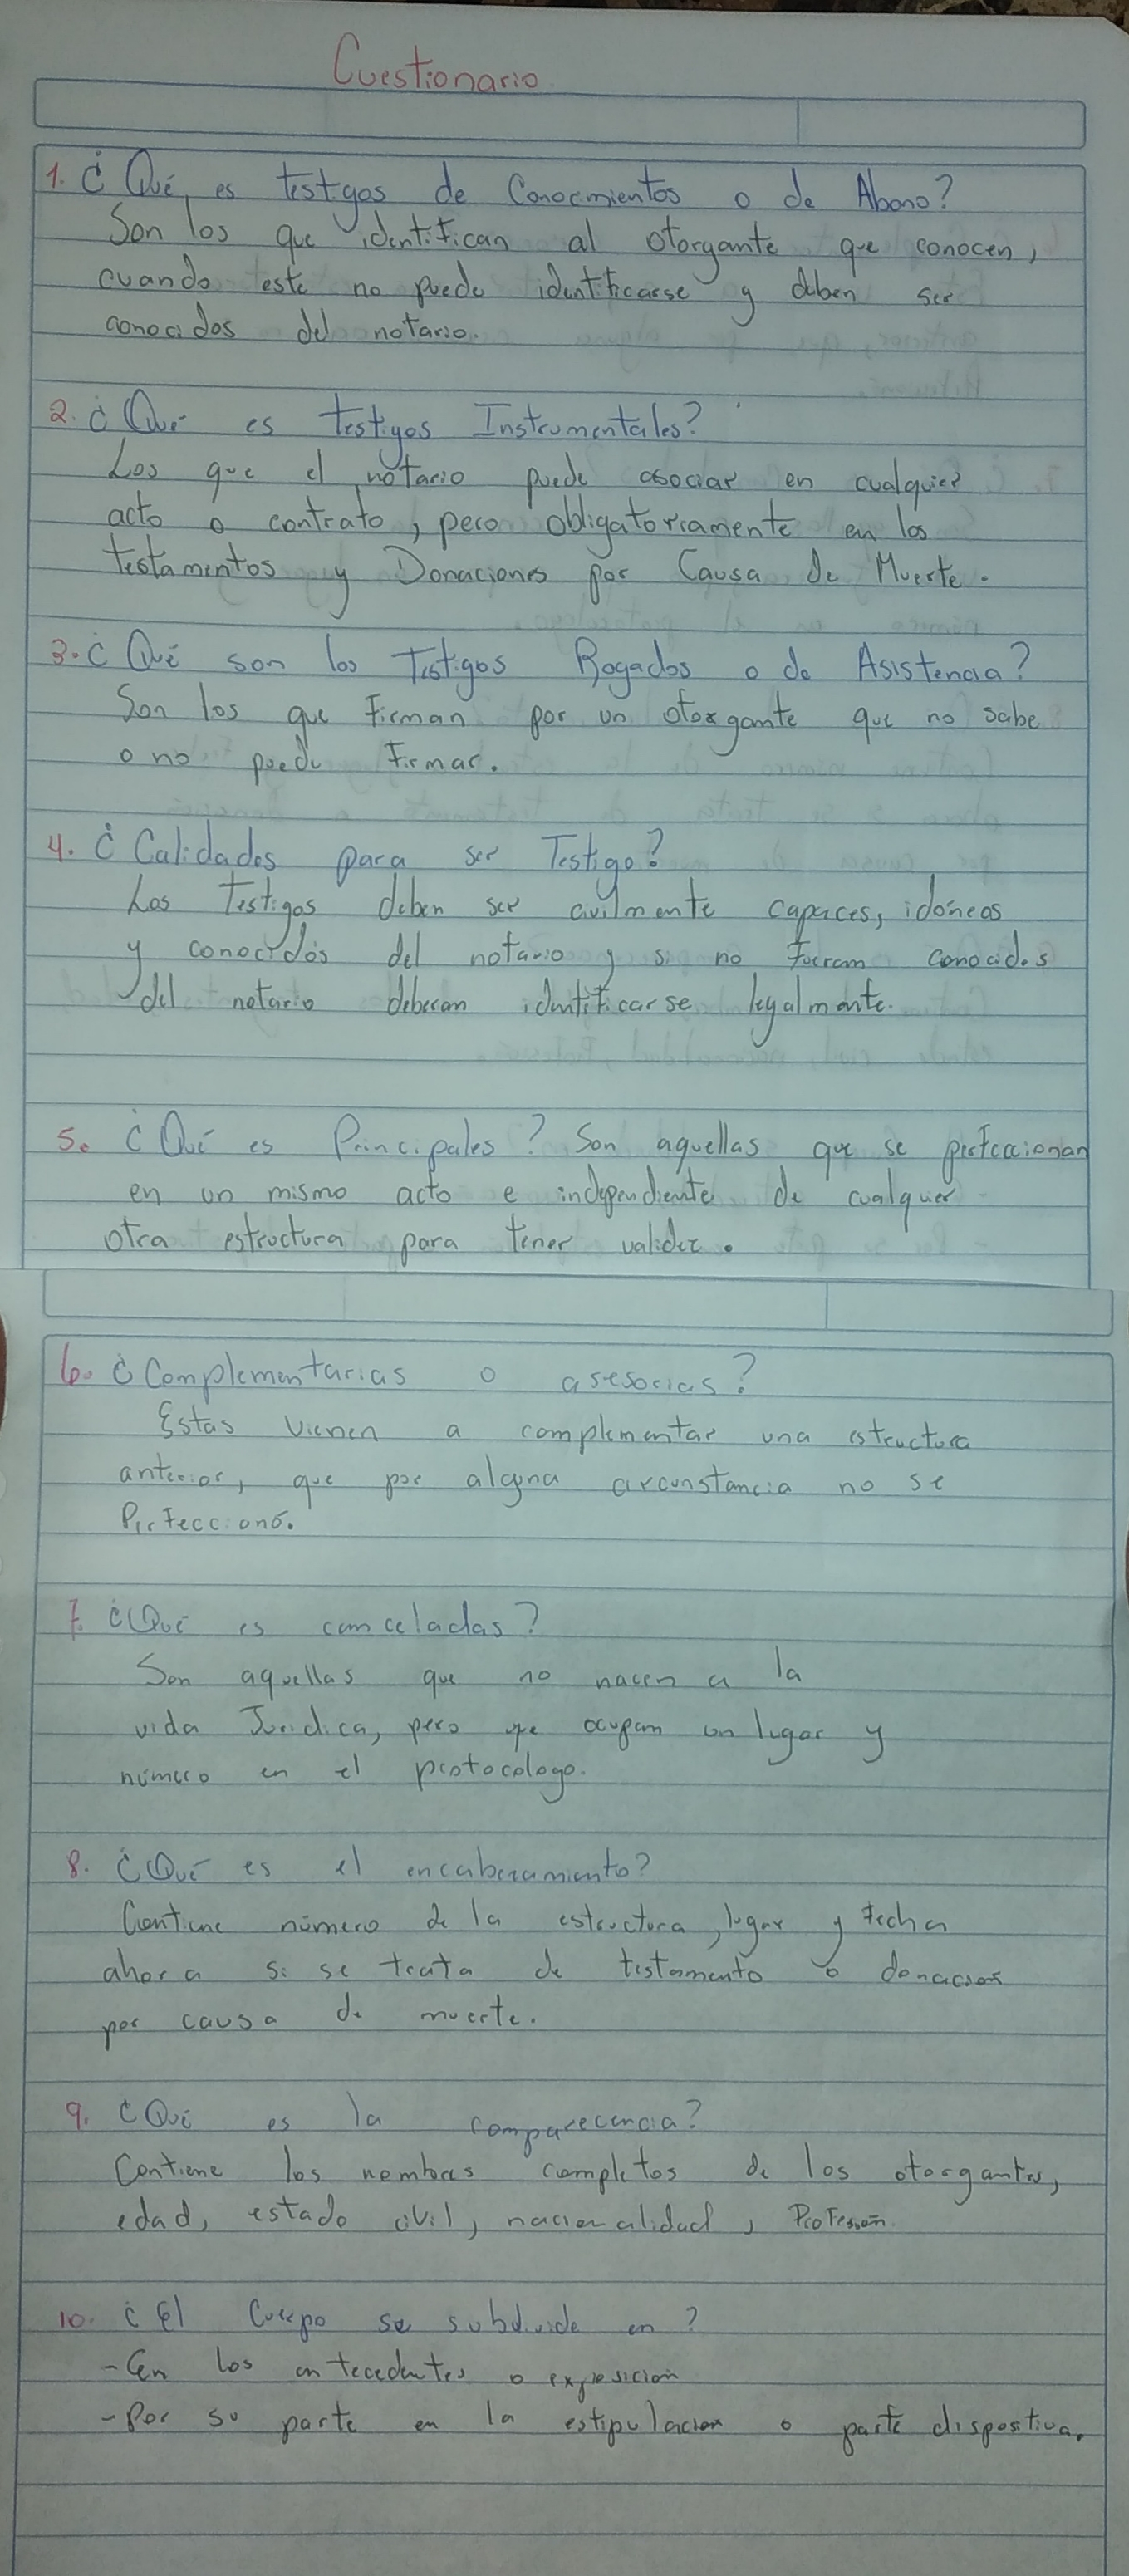 Cuestionario.
1. ¿Qué es testigos de Conocmientos o de Abono?
Son los que identifican al otorgante que conocen,
cuando este no puede identificarse y deben ser
conocidos del notario.
2. ¿Qué es testigos Instrumentales?
Los que el notario puede asociar en cualquier
acto o contrato, pero obligatoriamente en los
testamentos y Donaciones por Causa de Muerte.
3. ¿Qué son los Testigos Rogados o de Asistencia?
Son los que Firman por un otorgante que no sabe
o no puede Firmar.
4. ¿Calidades para ser Testigo?
Los Testigos deben ser civilmente capaces, idóneos
y conocidos del notario y si no Fueran conocidos
del notario deberan identificarse legalmente.
5. ¿Qué es Principales? Son aquellas que se perfeccionan
en un mismo acto e independiente de cualquier
otra estructura para tener validez.
6. ¿Complementarias o asesorias?
Estas vienen a complementar una estructura
anterior, que por alguna circunstancia no se
Perfeccionó.
7. ¿Qué es canceladas?
Son aquellas que no nacen a la
vida Juridica, pero que ocupan un lugar y
número en el protocologo.
8. ¿Qué es el encabezamiento?
Contiene número de la estructura, lugar y Fecha
ahora si se trata de testamento o donacion
por causa de muerte.
9. ¿Qué es la comparecencia?
Contiene los nombres completos de los otorgantes,
edad, estado civil, nacionalidad, Profesión.
10. ¿El Cuerpo se subdivide en?
- En los antecedentes o exposición
- Por su parte en la estipulacion o parte dispostiva.